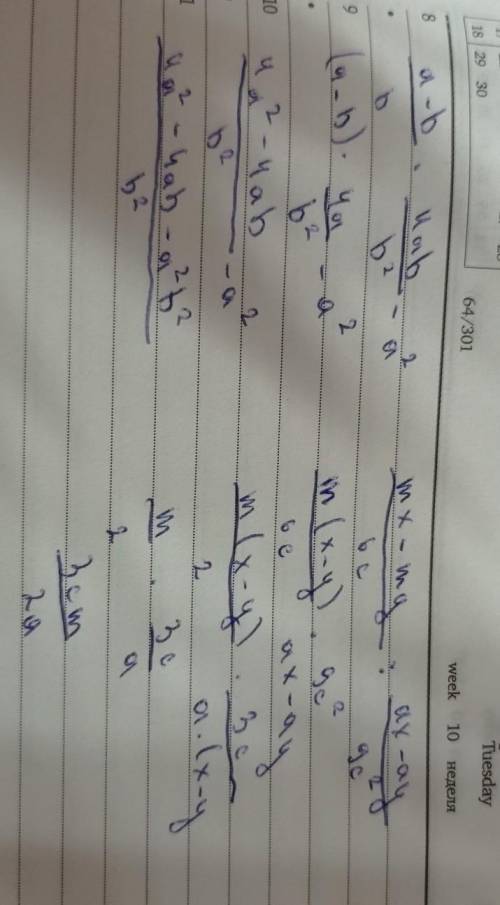 Tuesday
week 10 неделя
64/301
18 29 30
8
a-b / b · 4ab / b² - a²
9
(a-b) · 4a / b² - a²
10
4a² - 4ab / b² - a²
4a² - 4ab - a²b² / b²
mx - my / 6c : ax - ay / 9c²
m(x-y) / 6c · 9c² / ax - ay
m(x-y) / 2 · 3c / a·(x-y
m / 2 · 3c / a
3cm / 2a